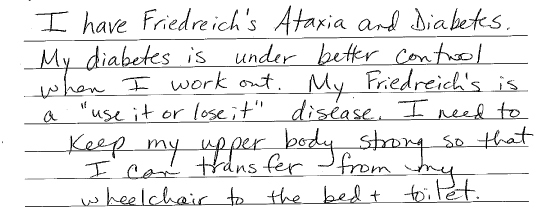 I have Friedreich's Ataxia and Diabetes.
My diabetes is under better control
when I work out. My Friedreich's is
a "use it or lose it" disease. I need to
keep my upper body strong so that
I can transfer from my
wheelchair to the bed + toilet.